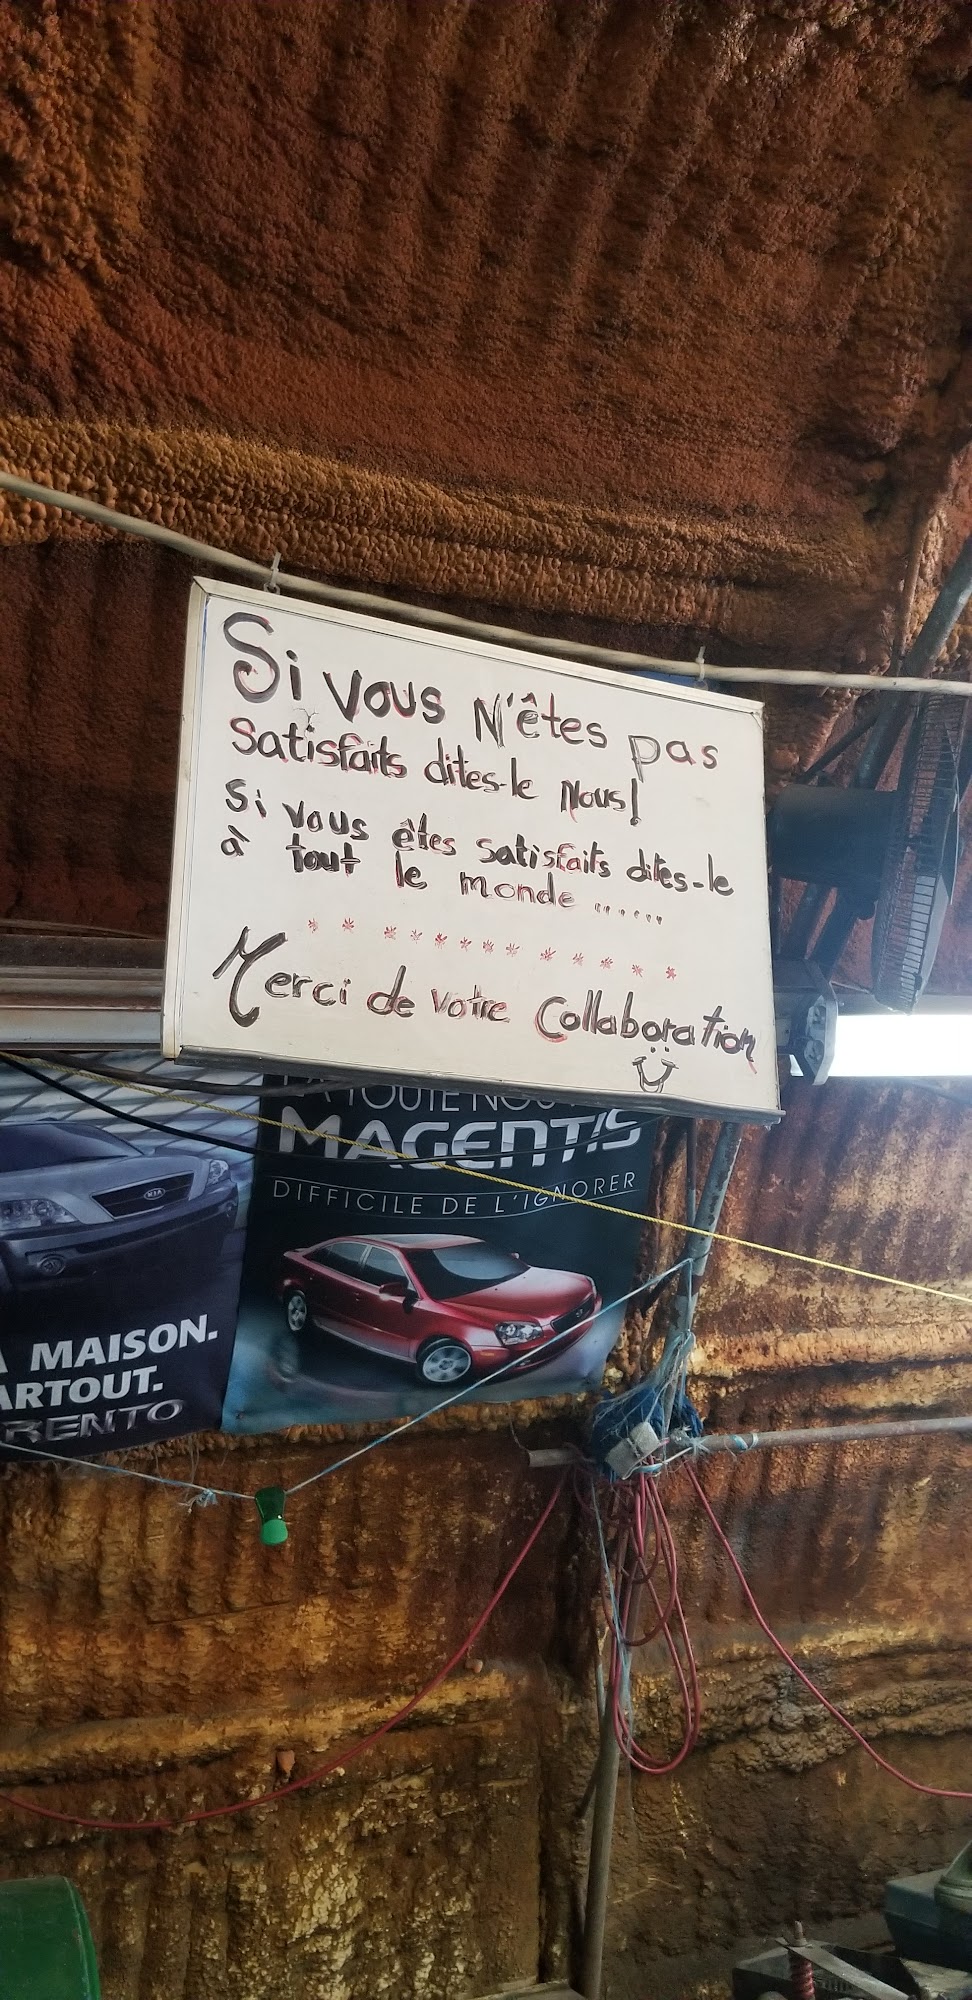 Si vous N'êtes pas
Satisfaits dites-le Nous!
Si vous êtes satisfaits dites-le
à tout le monde ......
* * * * * * * * * * * *
Merci de votre Collaboration
TOUTE
MAGENTIS
DIFFICILE DE L'IGNORER
KIA
MAISON.
ARTOUT.
RENTO